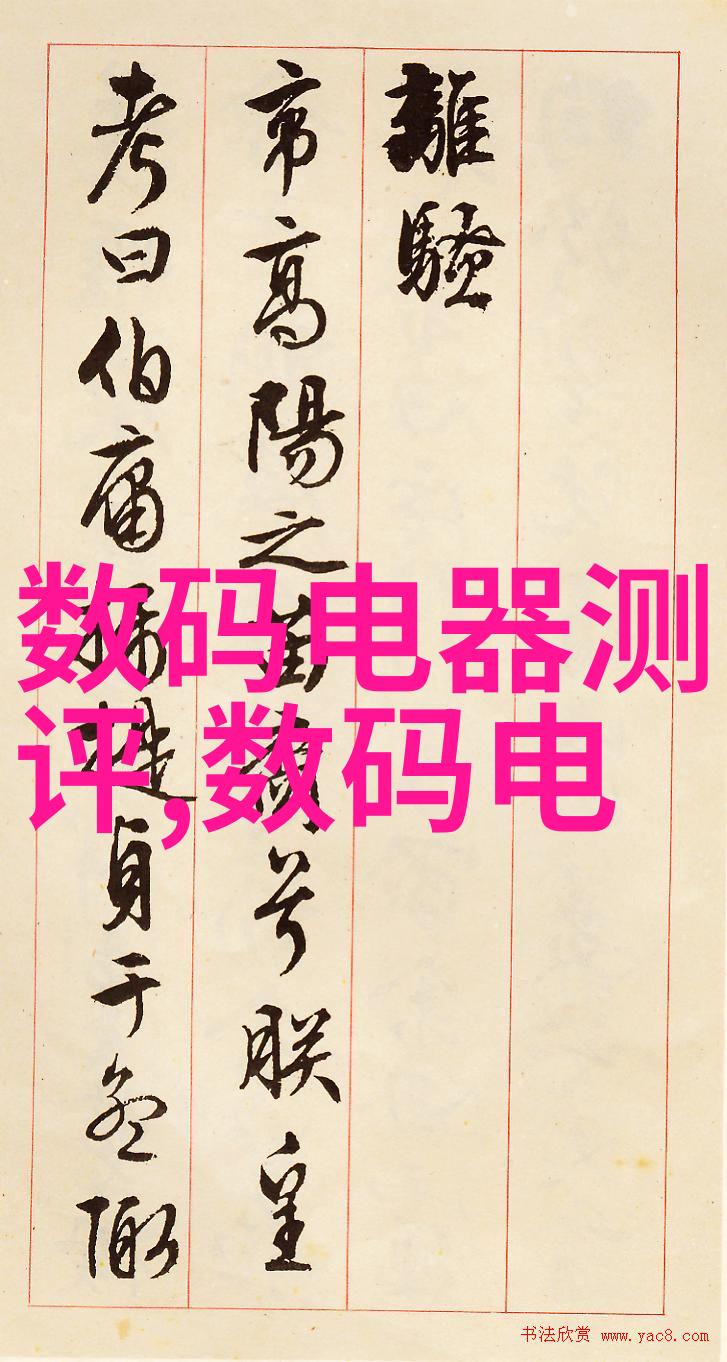 離騷
帝高陽之苗裔兮朕皇
考曰伯庸攝提貞于孟陬
数码电器测
评,数码电
书法欣赏 www.yac8.com